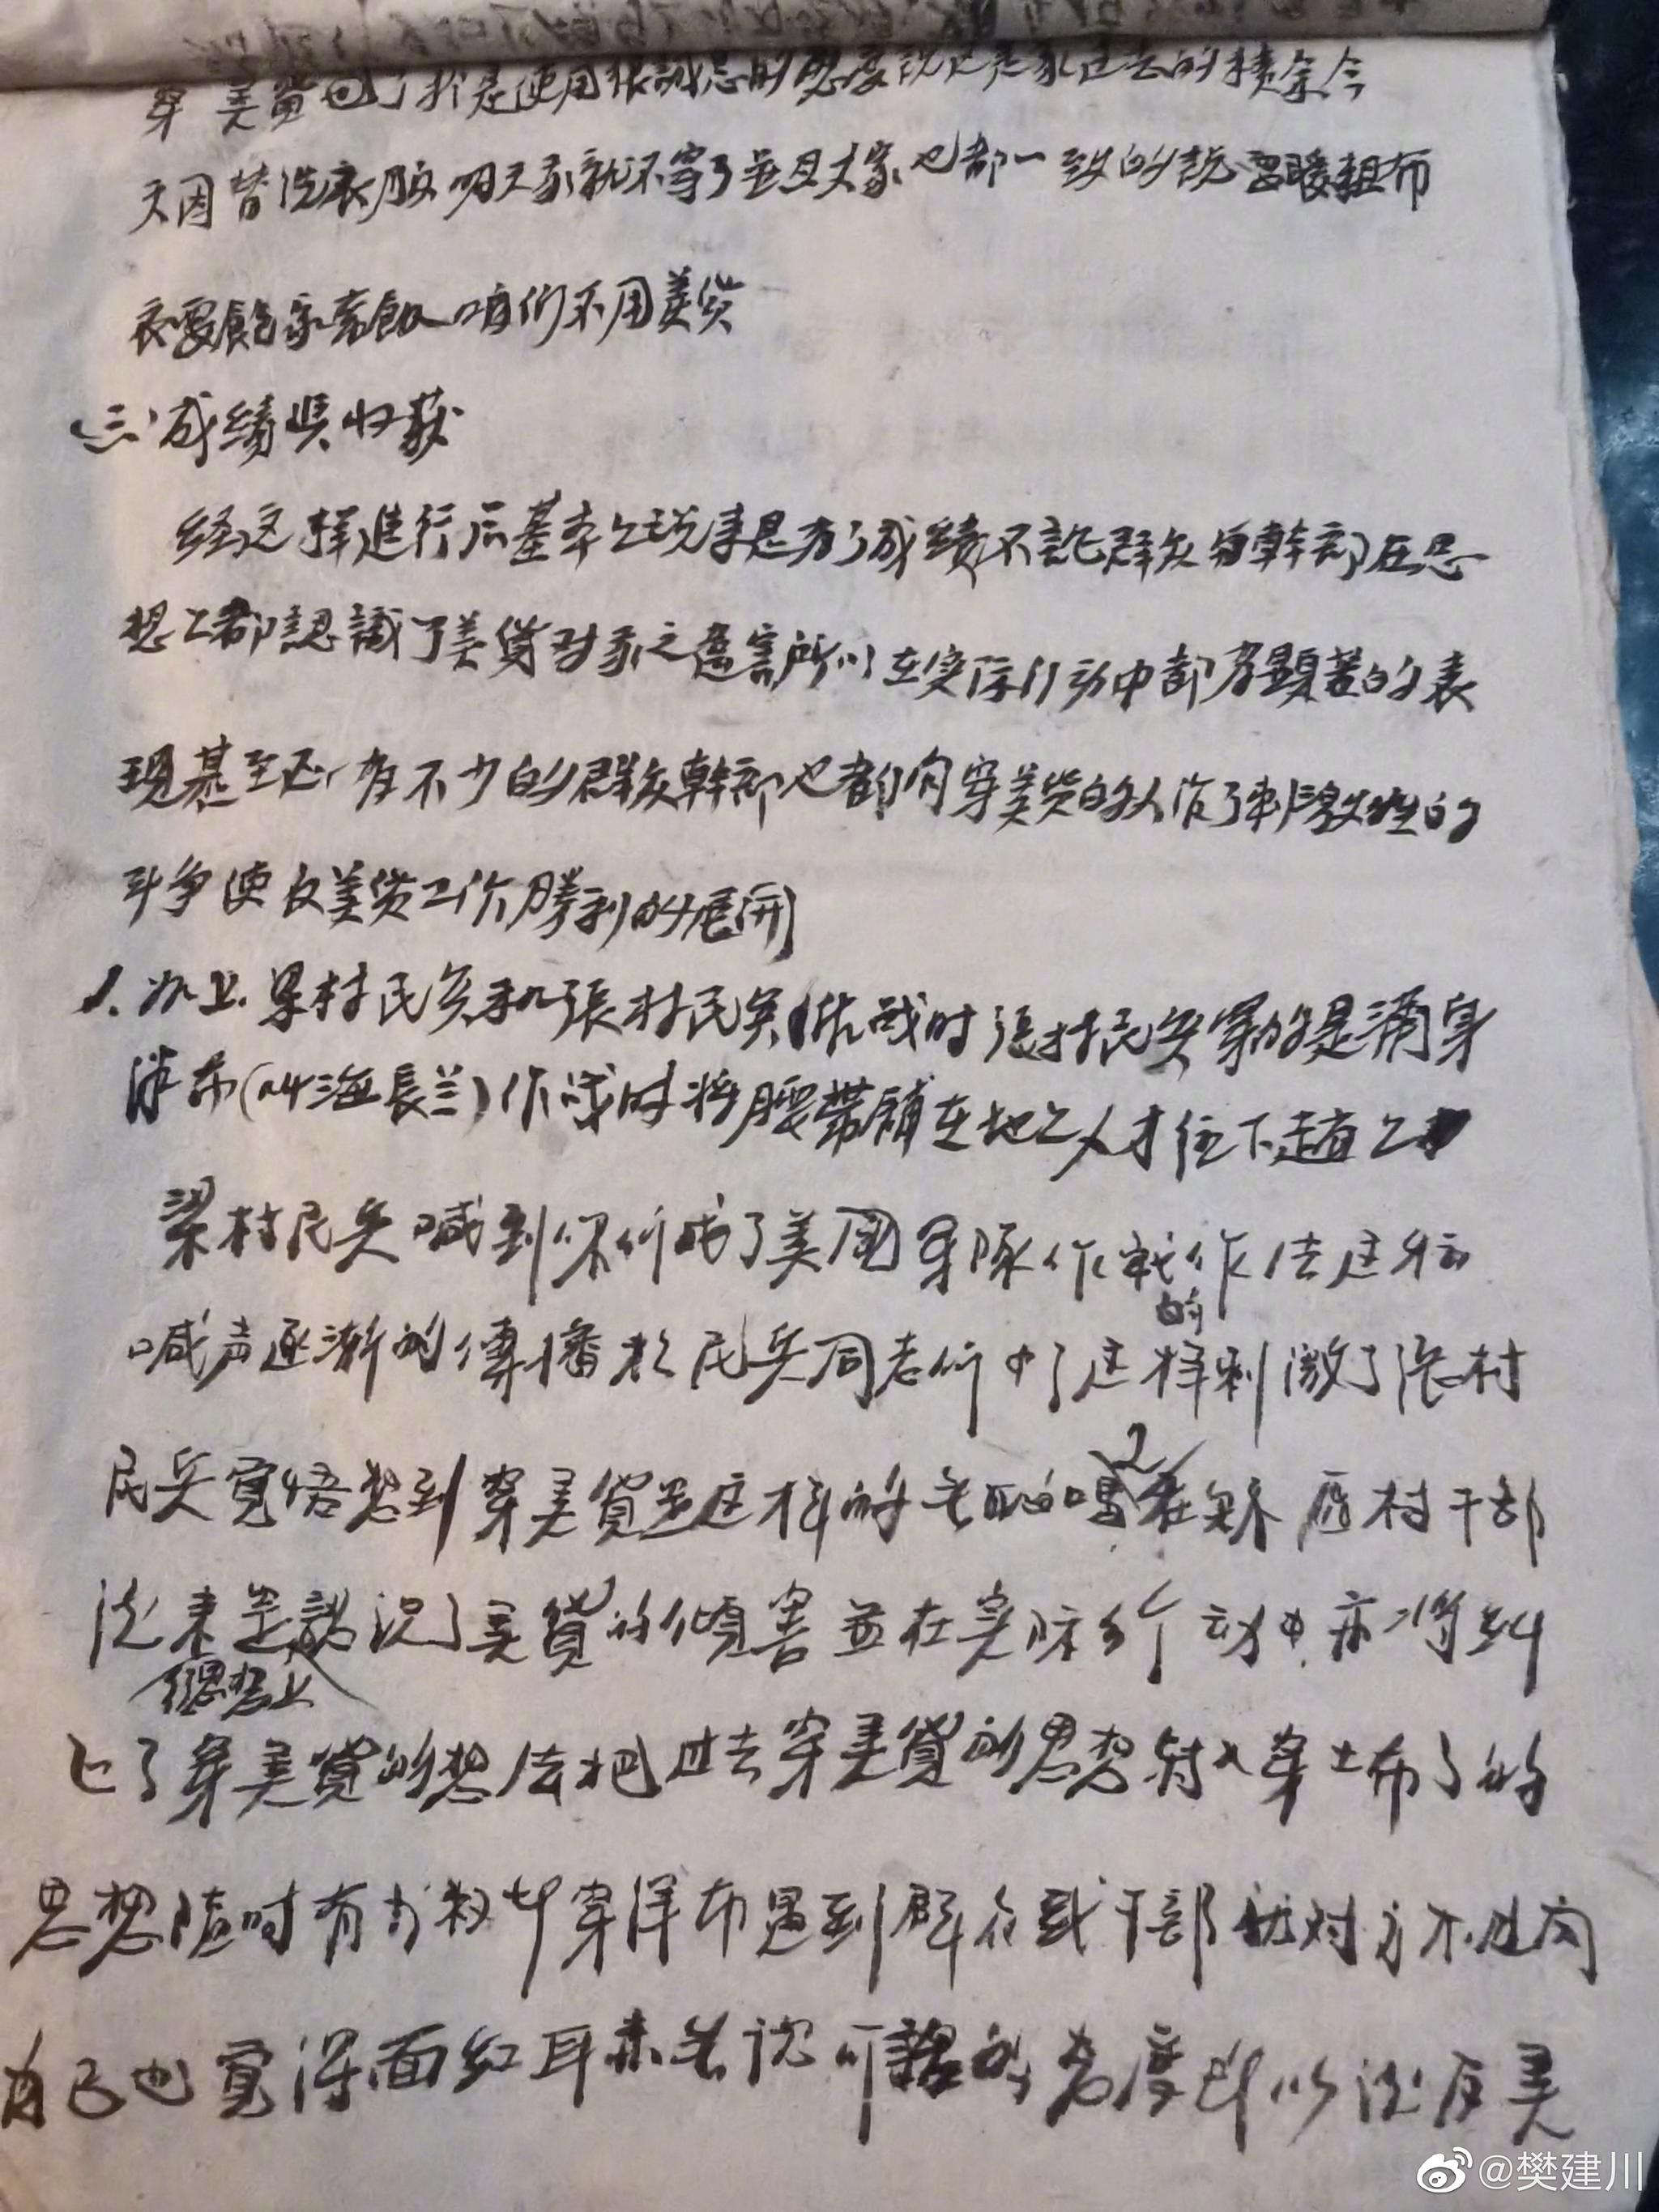 穿美貨也了於是便用很誠意的態度說这是我过去的積余今
天因替洗衣服明天我就不穿了並且大家也都一致的说要暖粗布
衣要飽家常飯咱们不用美货
三、成績與收获
经这样進行后基本上说来是有了成績不論群众与幹部在思
想上都認識了美貨对我之危害所以在实际行动中都有顯著的表
現甚至还有不少的群众幹部也都向穿美货的人作了刺激性的
斗争使反美货工作勝利的展開
1.如上.梁村民兵和張村民兵作战时張村民兵穿的是满身
洋布(叫海長兰)作战时将腰带鋪在地上人才往下趄上
梁村民兵喊到你们成了美國軍隊作战作法这样
的
喊声逐漸的傳播於民兵同志们中了这样刺激了張村
民兵覚悟想到穿美貨是这样的 村干部
说来是認识了美貨的傾害並在实际行动中亦将糾
思想上
上了穿美貨的想法把过去穿美貨的思想 穿土布了的
思想随时有 穿洋布遇到群众或干部 对方不
自己也覚得面紅耳赤 的态度所以说反美
@樊建川